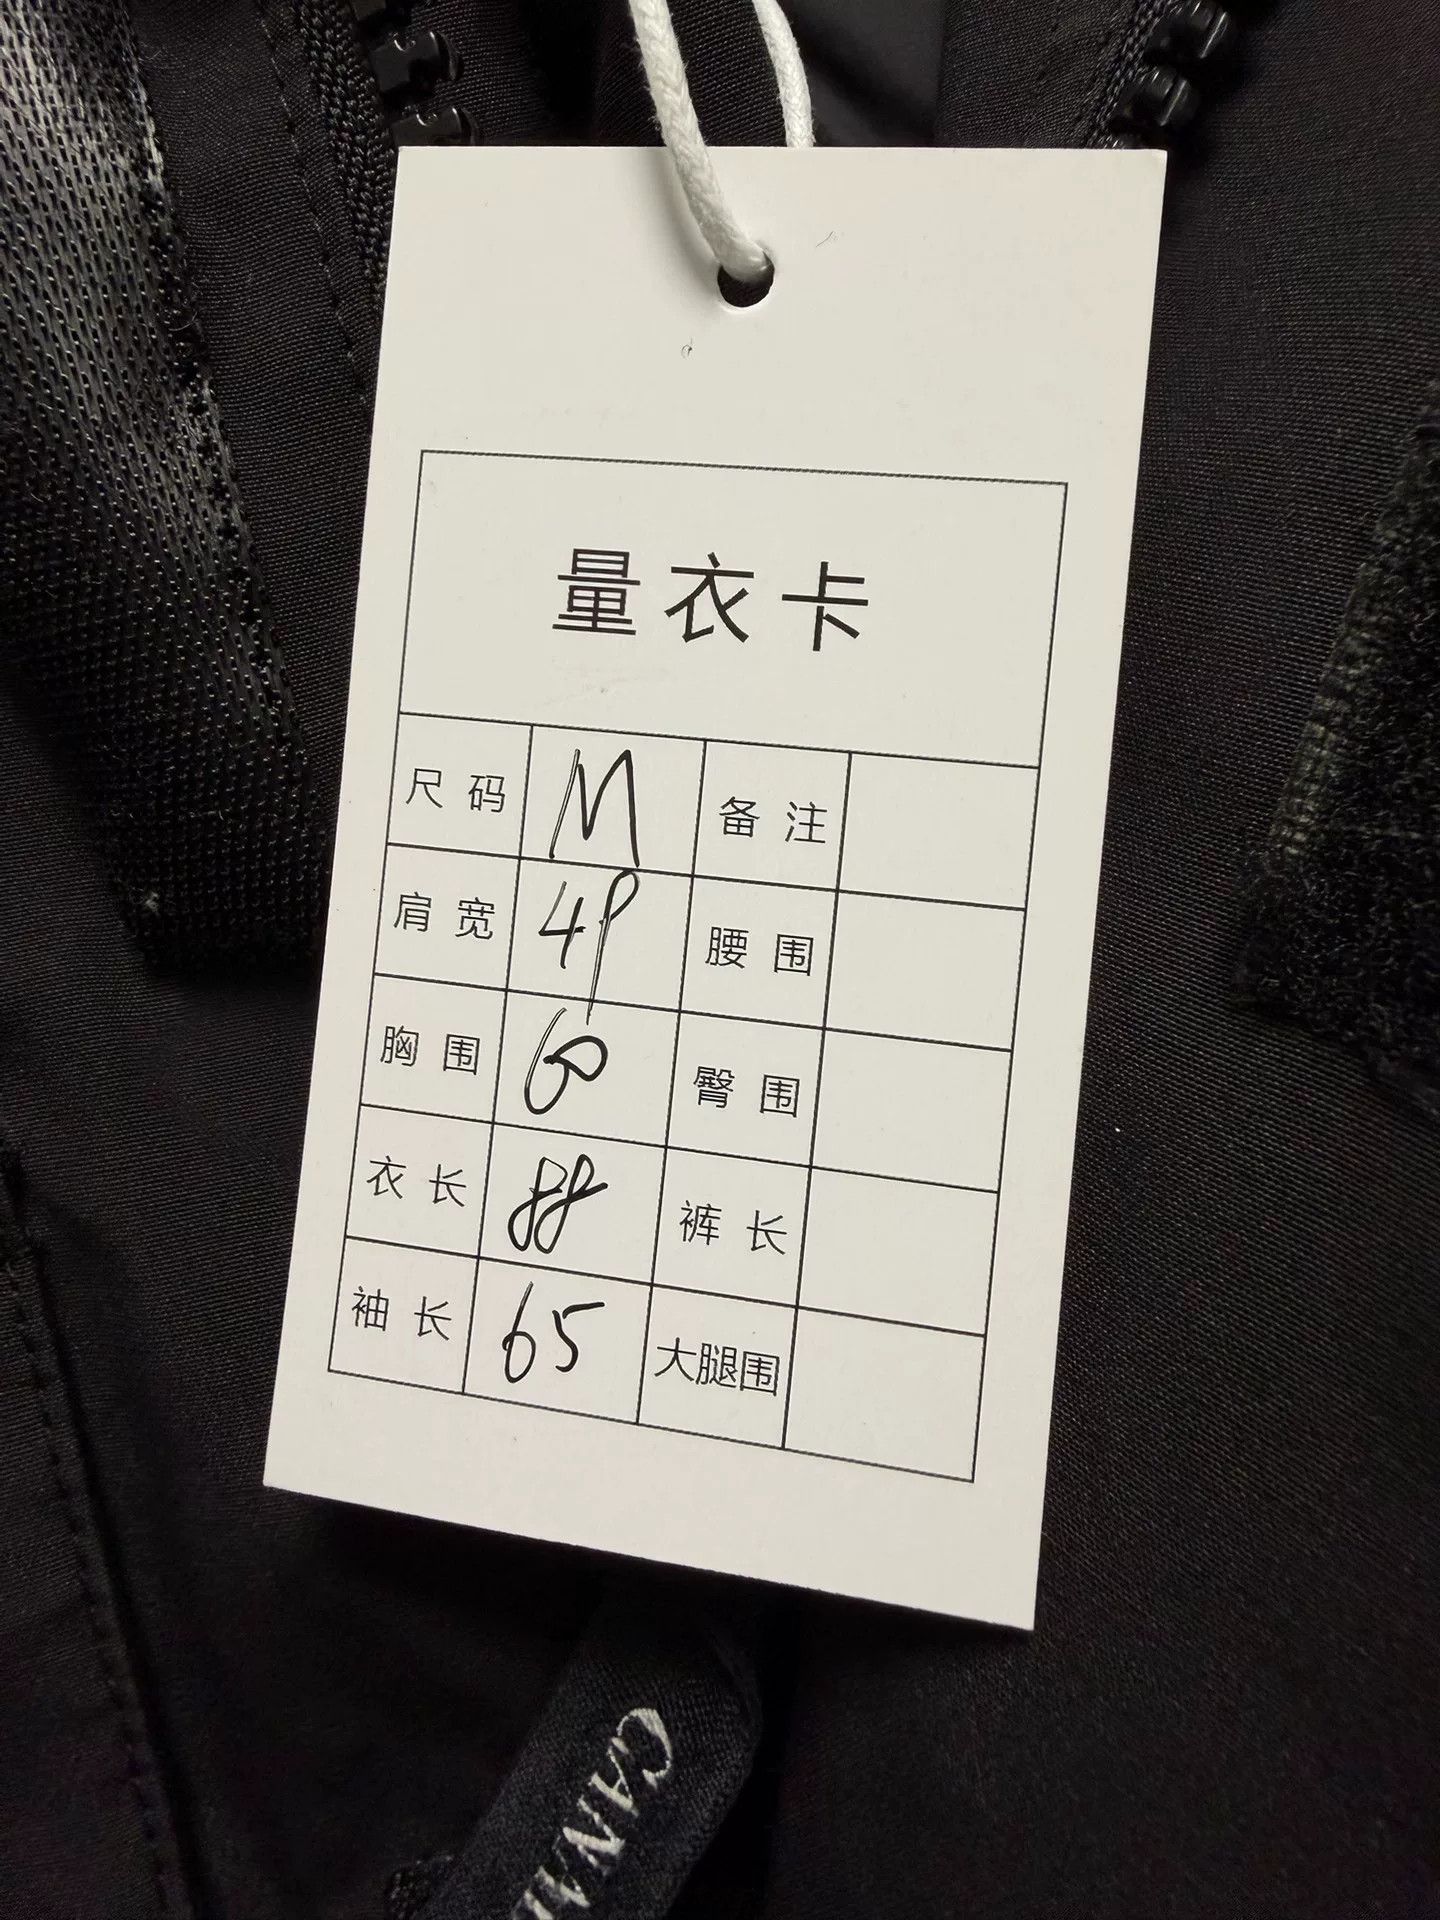 量衣卡
尺码 M 备注
肩宽 49 腰围
胸围 60 臀围
衣长 88 裤长
袖长 65 大腿围
CANA